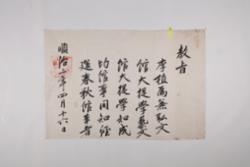 教旨
李植爲兼弘文
館大提學藝文
館大提學知成
均館事同知經
筵春秋館事者
順治二年四月十六日